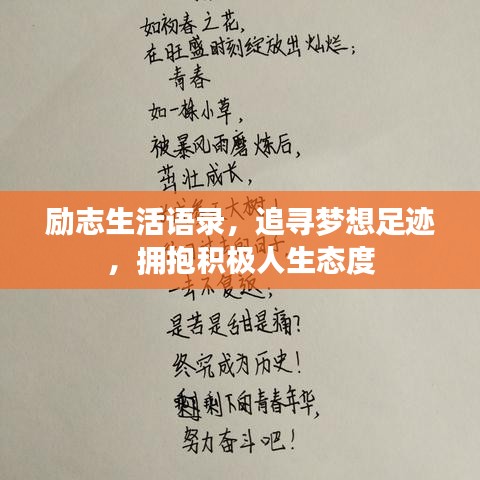 如初春之花,
在旺盛时刻绽放出灿烂;
青春
如一株小草,
被暴风雨磨炼后,
茁壮成长,
励志生活语录，追寻梦想足迹
，拥抱积极人生态度
一去不复返;
是苦是甜是痛?
终究成为历史!
剩下的青春年华,
努力奋斗吧!